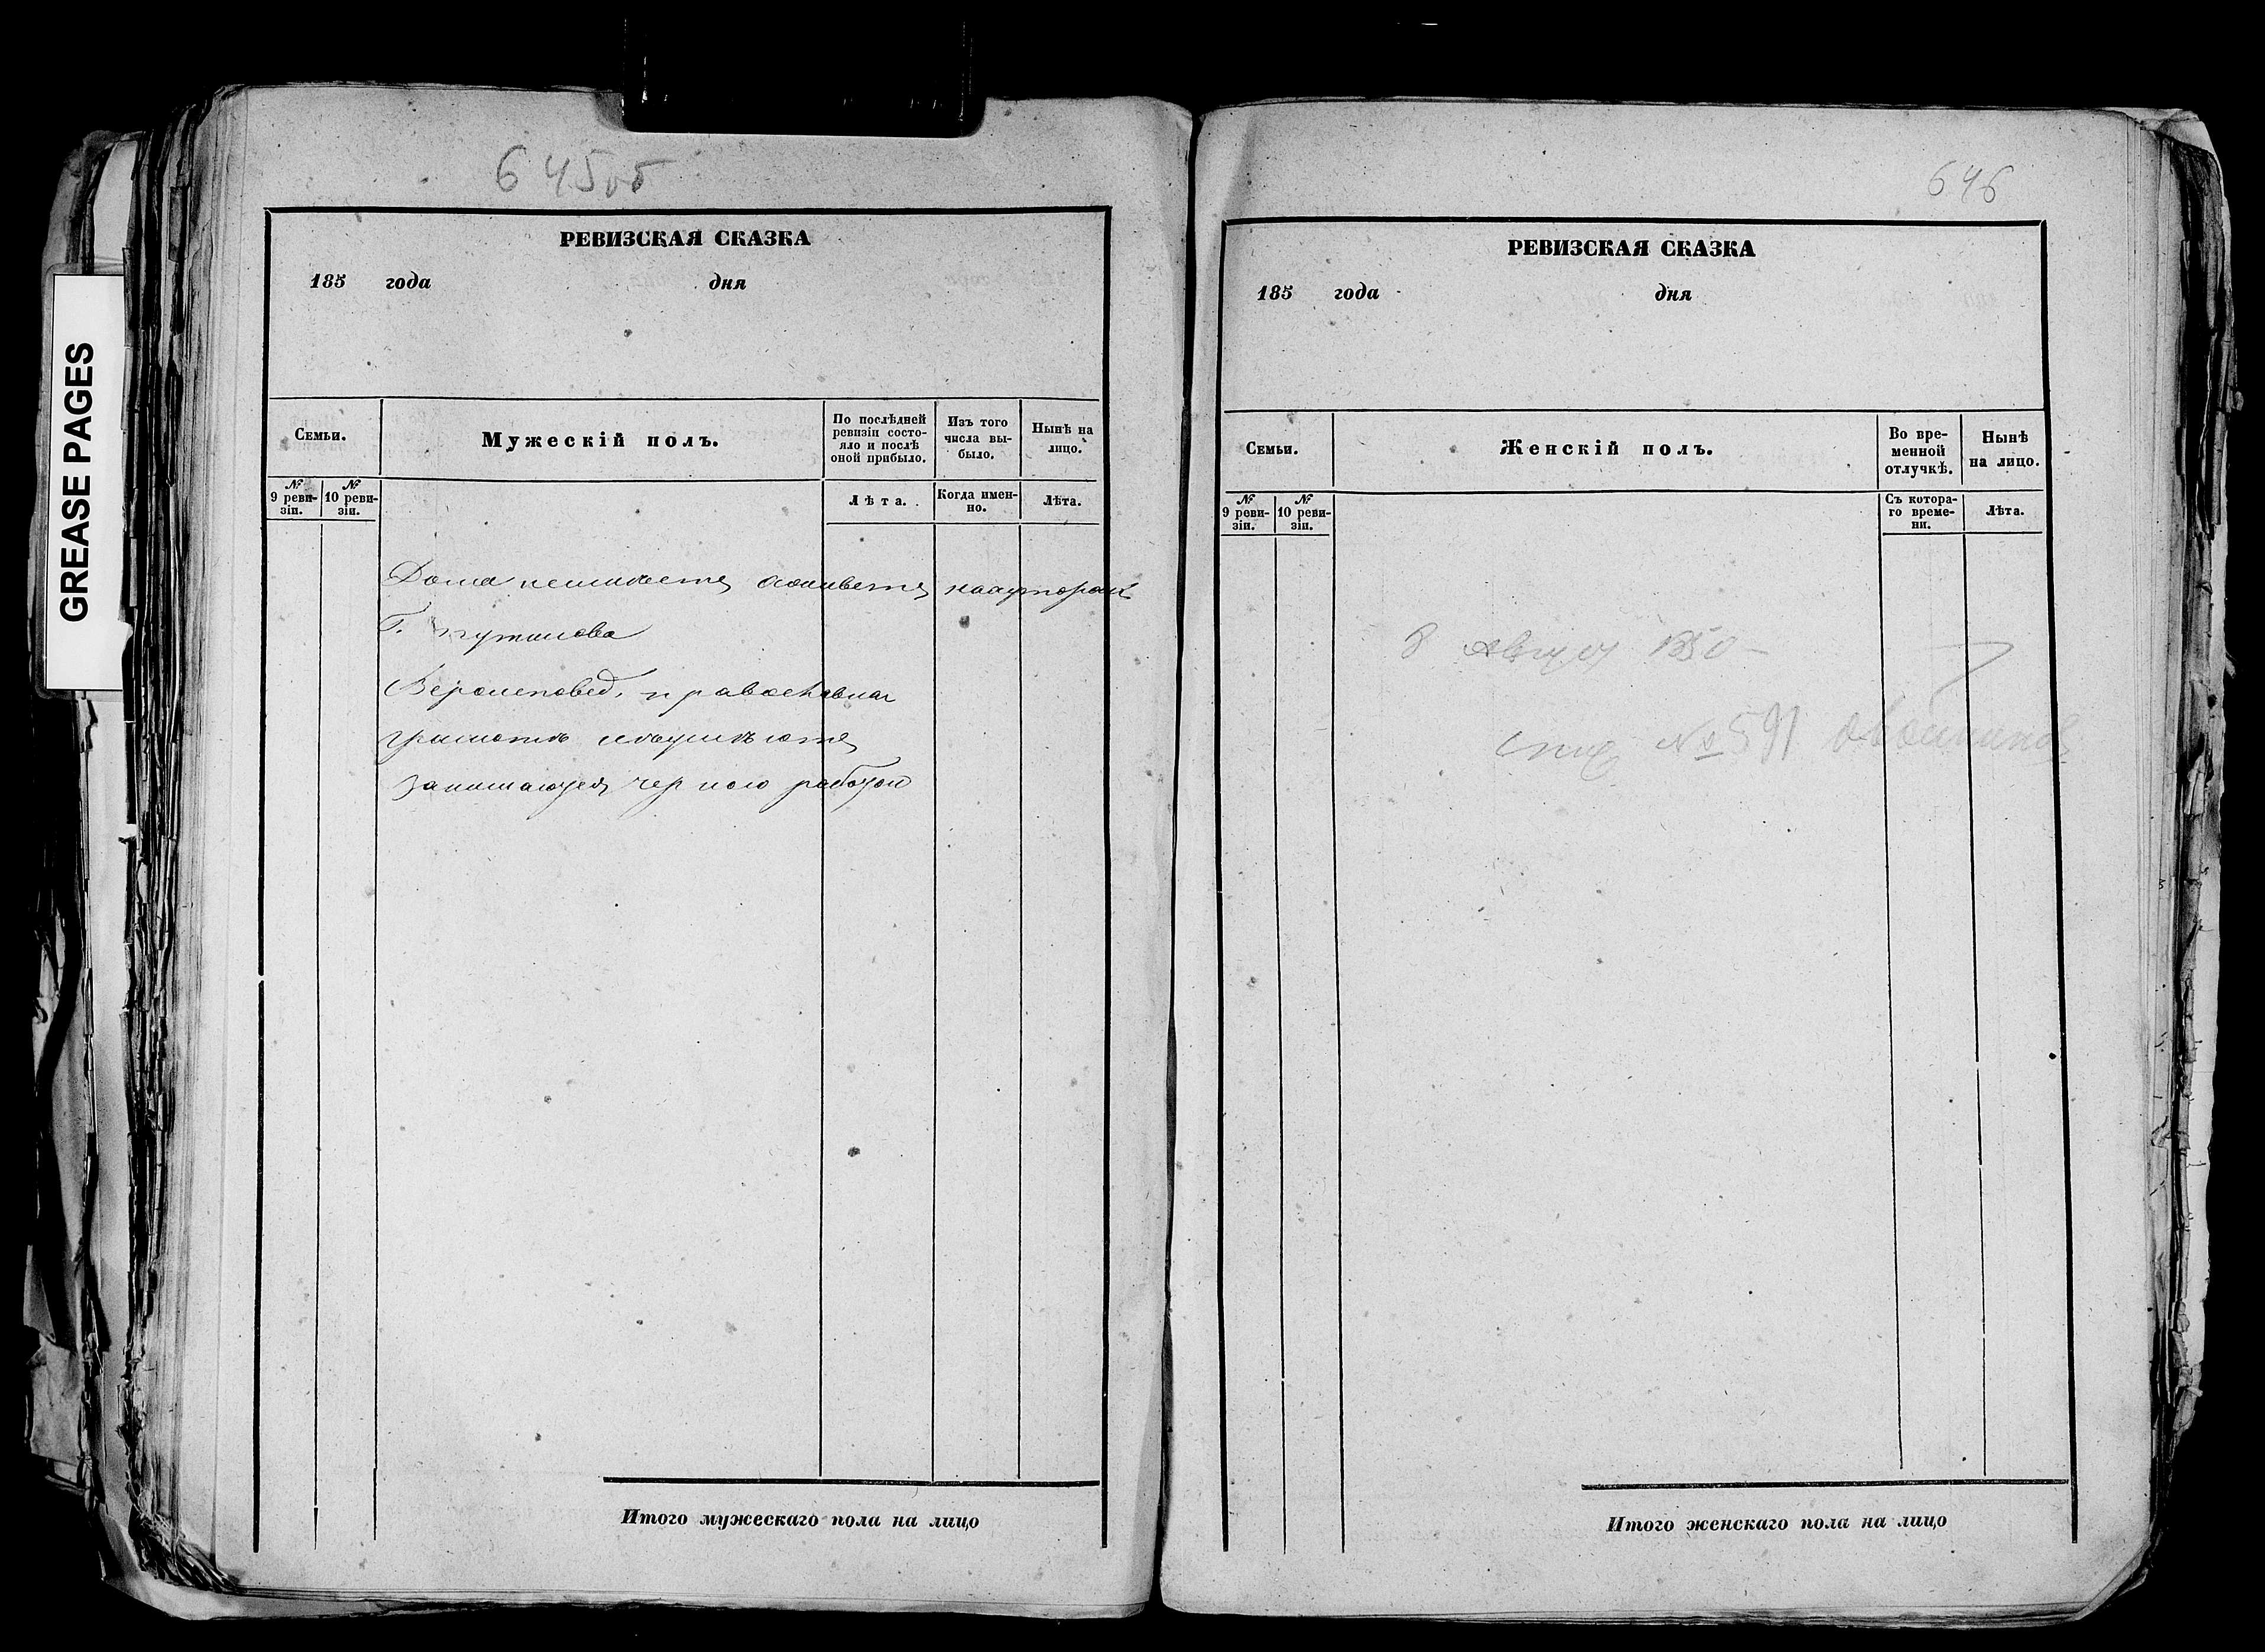 GREASE PAGES
645об
РЕВИЗСКАЯ СКАЗКА
185 года дня
Семьи.
Мужескій полъ.
По послѣдней ревизіи состояло и послѣ оной прибыло.
Изъ того числа выбыло.
Нынѣ на лицо.
№ 9 ревизіи.
№ 10 ревизіи.
Лѣта.
Когда именно.
Лѣта.
Дома
Г.
Вероисповед. православная
занимаются черною работою
Итого мужескаго пола на лицо
646
РЕВИЗСКАЯ СКАЗКА
185 года дня
Семьи.
Женскій полъ.
Во временной отлучкѣ.
Нынѣ на лицо.
№ 9 ревизіи.
№ 10 ревизіи.
Съ котораго времени.
Лѣта.
8 Август 1850
№ 591
Итого женскаго пола на лицо